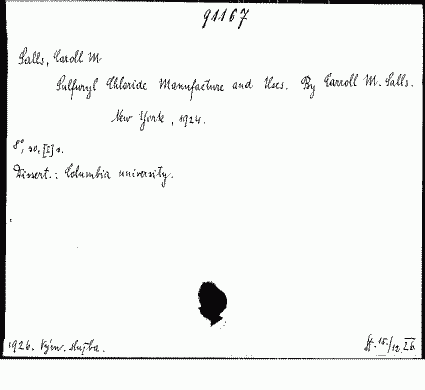 91167
Salls, Caroll M
Sulfuryl Chloride Manufacture and Uses. By Carroll M. Salls.
New York, 1924.
8°, 20, [I] s.
Dissert.: Columbia university.
1926. Vým. služba.